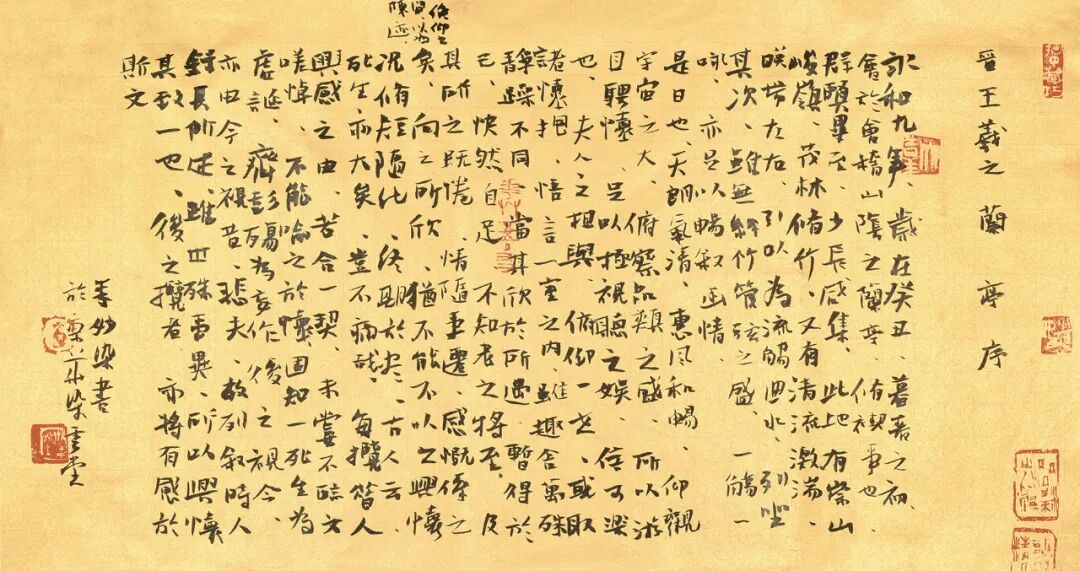 晉王羲之蘭亭序
永和九年歲在癸丑暮春之初
會於會稽山陰之蘭亭脩禊事也
群賢畢至少長咸集此地有崇山
峻嶺茂林脩竹又有清流激湍
暎帶左右引以為流觴曲水列坐
其次雖無絲竹管弦之盛一觴一
詠亦足以暢叙幽情
是日也天朗氣清惠風和暢仰觀
宇宙之大俯察品類之盛所以游
目騁懷足以極視聽之娛信可樂
也夫人之相與俯仰一世或取
諸懷抱悟言一室之內雖趣舍萬殊
靜躁不同當其欣於所遇暫得於
己快然自足不知老之將至及
其所之既惓情隨事遷感慨係之
矣向之所欣猶不能不以之興懷
俛仰之
間以為
陳迹
況脩短隨化終期於盡古人云
死生亦大矣豈不痛哉每攬昔人
興感之由若合一契未嘗不臨文
嗟悼不能喻之於懷固知一死生為
虛誕齊彭殤為妄作後之視今
亦由今之視昔悲夫故列叙時人
錄其所述雖世殊事異所以興懷
其致一也後之攬者亦將有感於
斯文
姜妙染書
於染雲堂